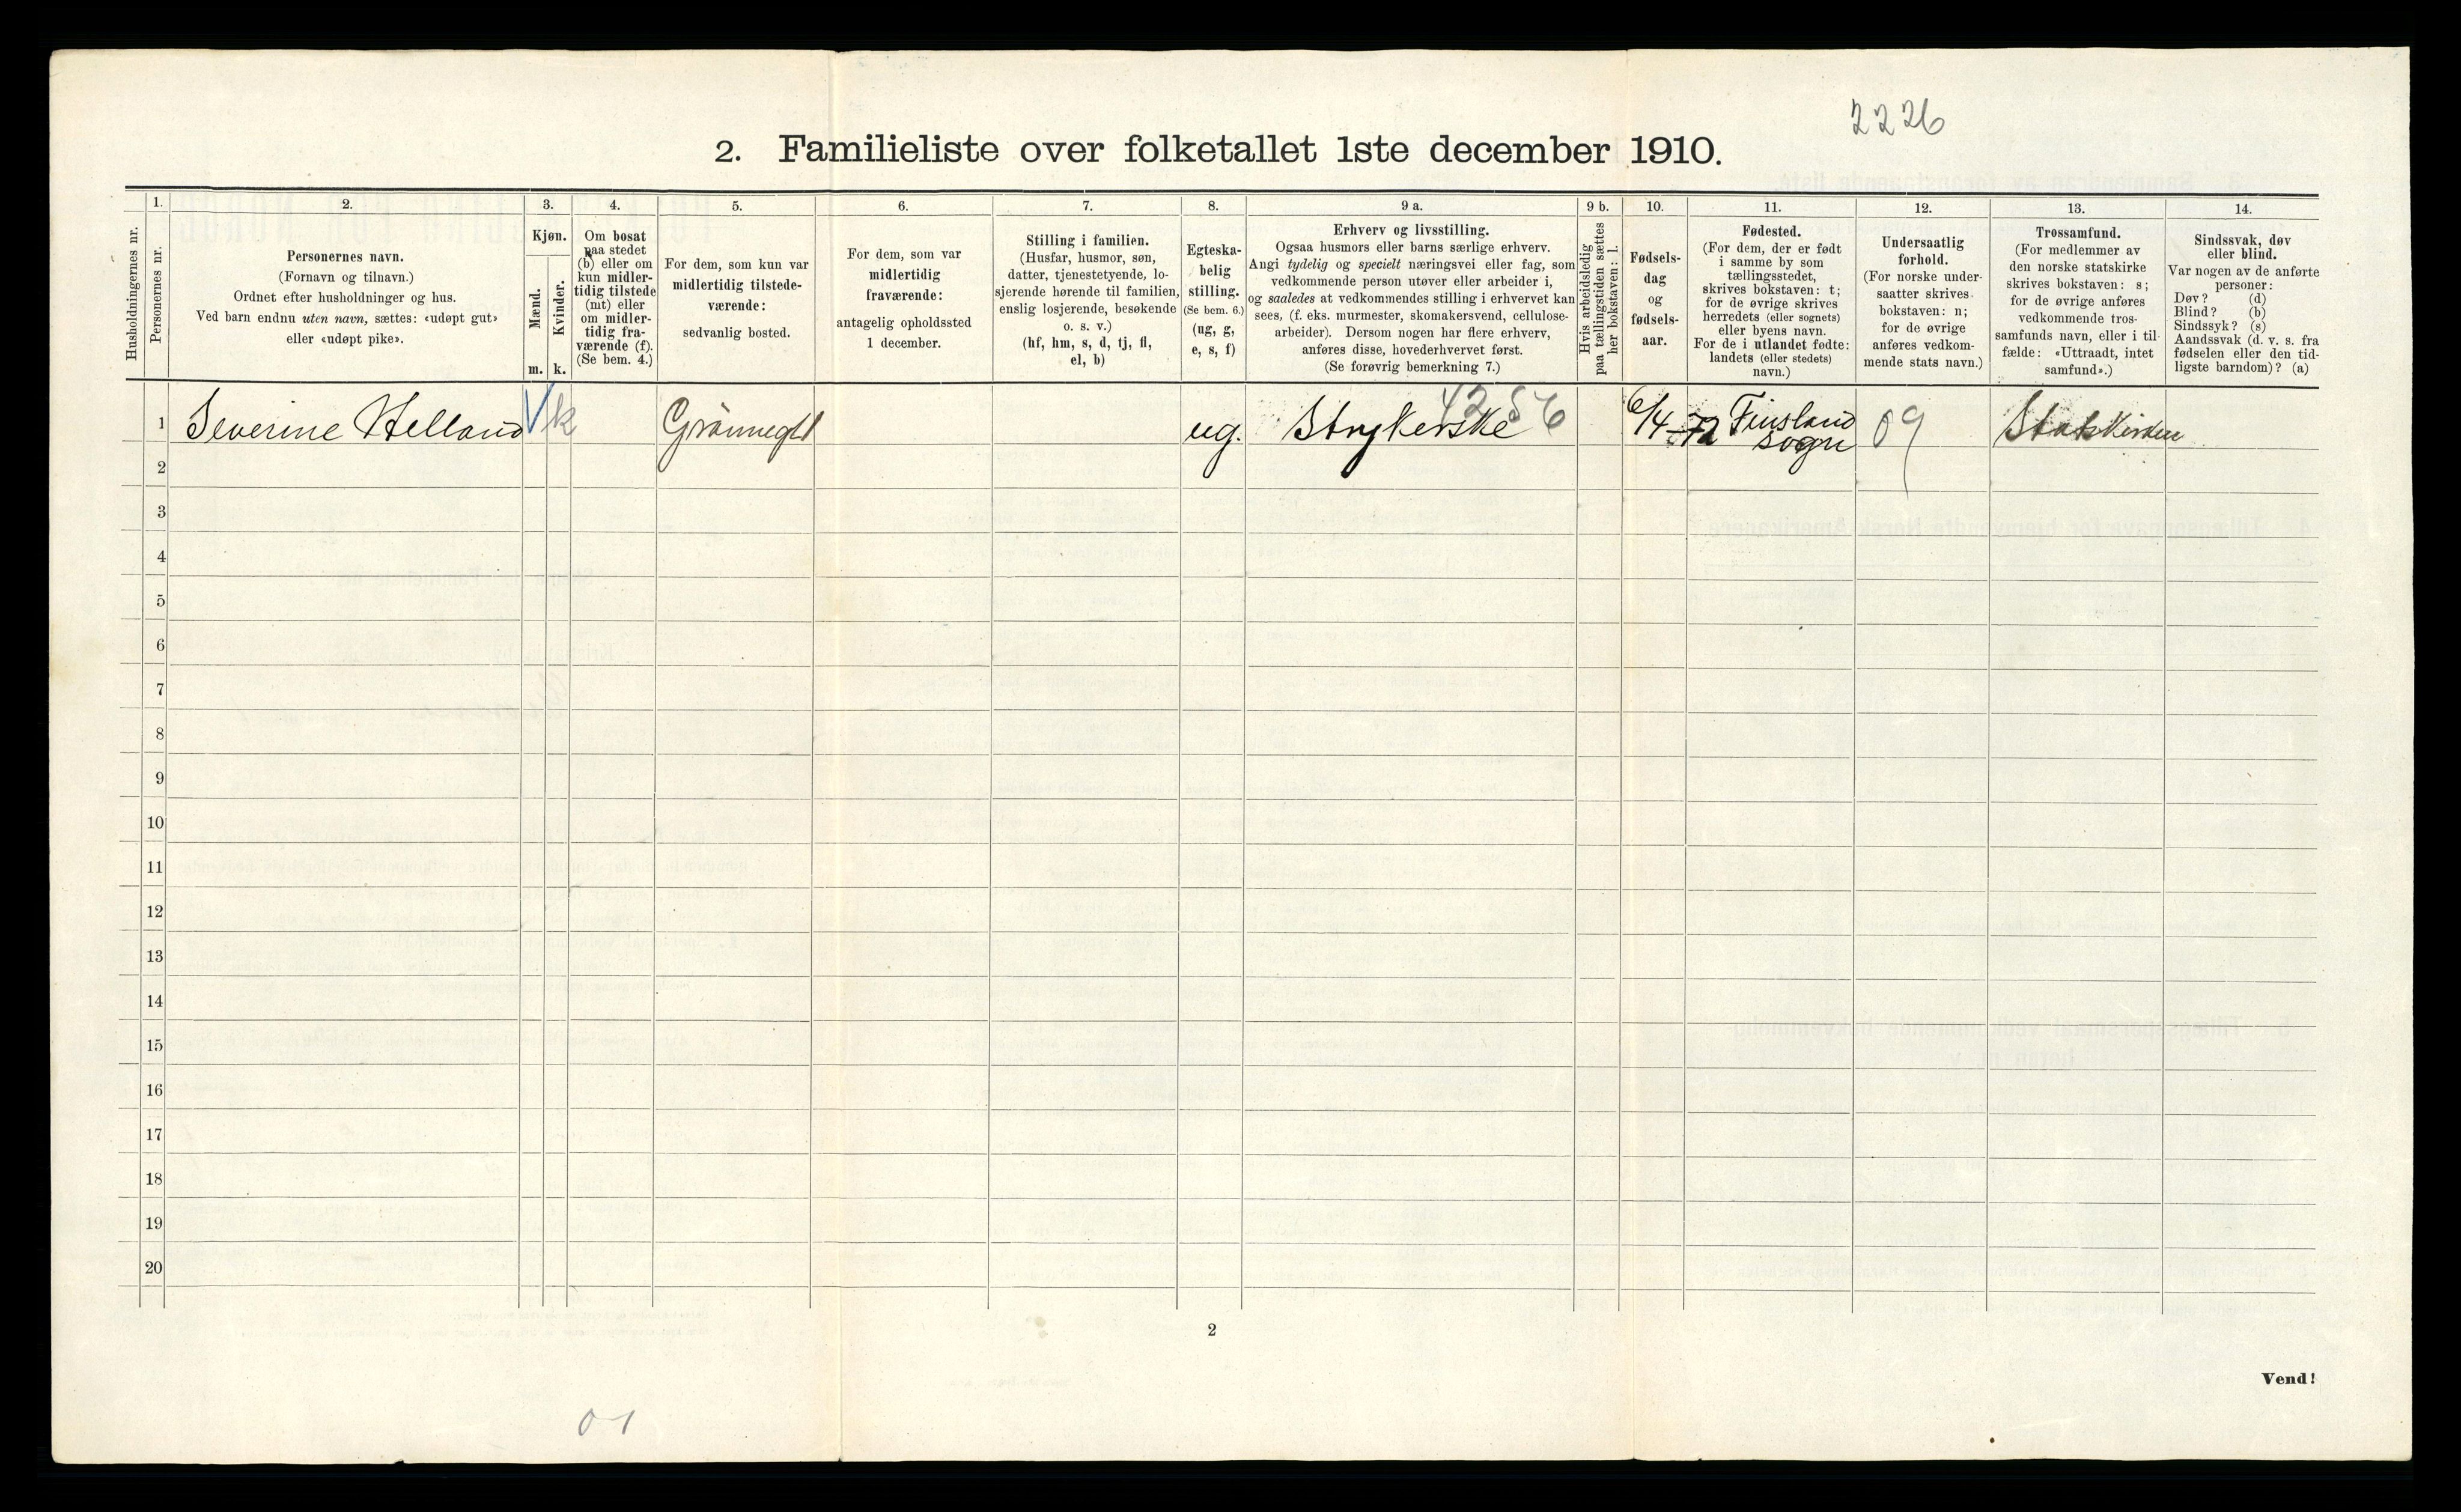 2226
2. Familieliste over folketallet 1ste december 1910.
Husholdningernes nr.
1.
Personernes nr.
2.
Personernes navn.
(Fornavn og tilnavn.)
Ordnet efter husholdninger og hus.
Ved barn endnu uten navn, sættes: «udøpt gut»
eller «udøpt pike».
3.
Kjøn.
Mænd.
Kvinder.
m. k.
4.
Om bosat
paa stedet
(b) eller om
kun midler-
tidig tilstede
(mt) eller
om midler-
tidig fra-
værende (f).
(Se bem. 4.)
5.
For dem, som kun var
midlertidig tilstede-
værende:
sedvanlig bosted.
6.
For dem, som var
midlertidig
fraværende:
antagelig opholdssted
1 december.
7.
Stilling i familien.
(Husfar, husmor, søn,
datter, tjenestetyende, lo-
sjerende hørende til familien,
enslig losjerende, besøkende
o. s. v.)
(hf, hm, s, d, tj, fl,
el, b)
8.
Egteska-
belig
stilling.
(Se bem. 6.)
(ug, g,
e, s, f)
9 a.
Erhverv og livsstilling.
Ogsaa husmors eller barns særlige erhverv.
Angi tydelig og specielt næringsvei eller fag, som
vedkommende person utøver eller arbeider i,
og saaledes at vedkommendes stilling i erhvervet kan
sees, (f. eks. murmester, skomakersvend, cellulose-
arbeider). Dersom nogen har flere erhverv,
anføres disse, hovederhvervet først.
(Se forøvrig bemerkning 7.)
9 b.
Hvis arbeidsledig
paa tællingstiden sættes
her bokstaven: l.
10.
Fødsels-
dag
og
fødsels-
aar.
11.
Fødested.
(For dem, der er født
i samme by som
tællingsstedet,
skrives bokstaven: t;
for de øvrige skrives
herredets (eller sognets)
eller byens navn.
For de i utlandet fødte:
landets (eller stedets)
navn.)
12.
Undersaatlig
forhold.
(For norske under-
saatter skrives
bokstaven: n;
for de øvrige
anføres vedkom-
mende stats navn.)
13.
Trossamfund.
(For medlemmer av
den norske statskirke
skrives bokstaven: s;
for de øvrige anføres
vedkommende tros-
samfunds navn, eller i til-
fælde: «Uttraadt, intet
samfund».)
14.
Sindssvak, døv
eller blind.
Var nogen av de anførte
personer:
Døv? (d)
Blind? (b)
Sindssyk? (s)
Aandssvak (d. v. s. fra
fødselen eller den tid-
ligste barndom)? (a)
1 Severine Helland k Grönnegt 1 ug. Strykerske 4256 6/4-72 Finsland 09 Statskirken
sogn
2
3
4
5
6
7
8
9
10
11
12
13
14
15
16
17
18
19
20
2
Vend!
01